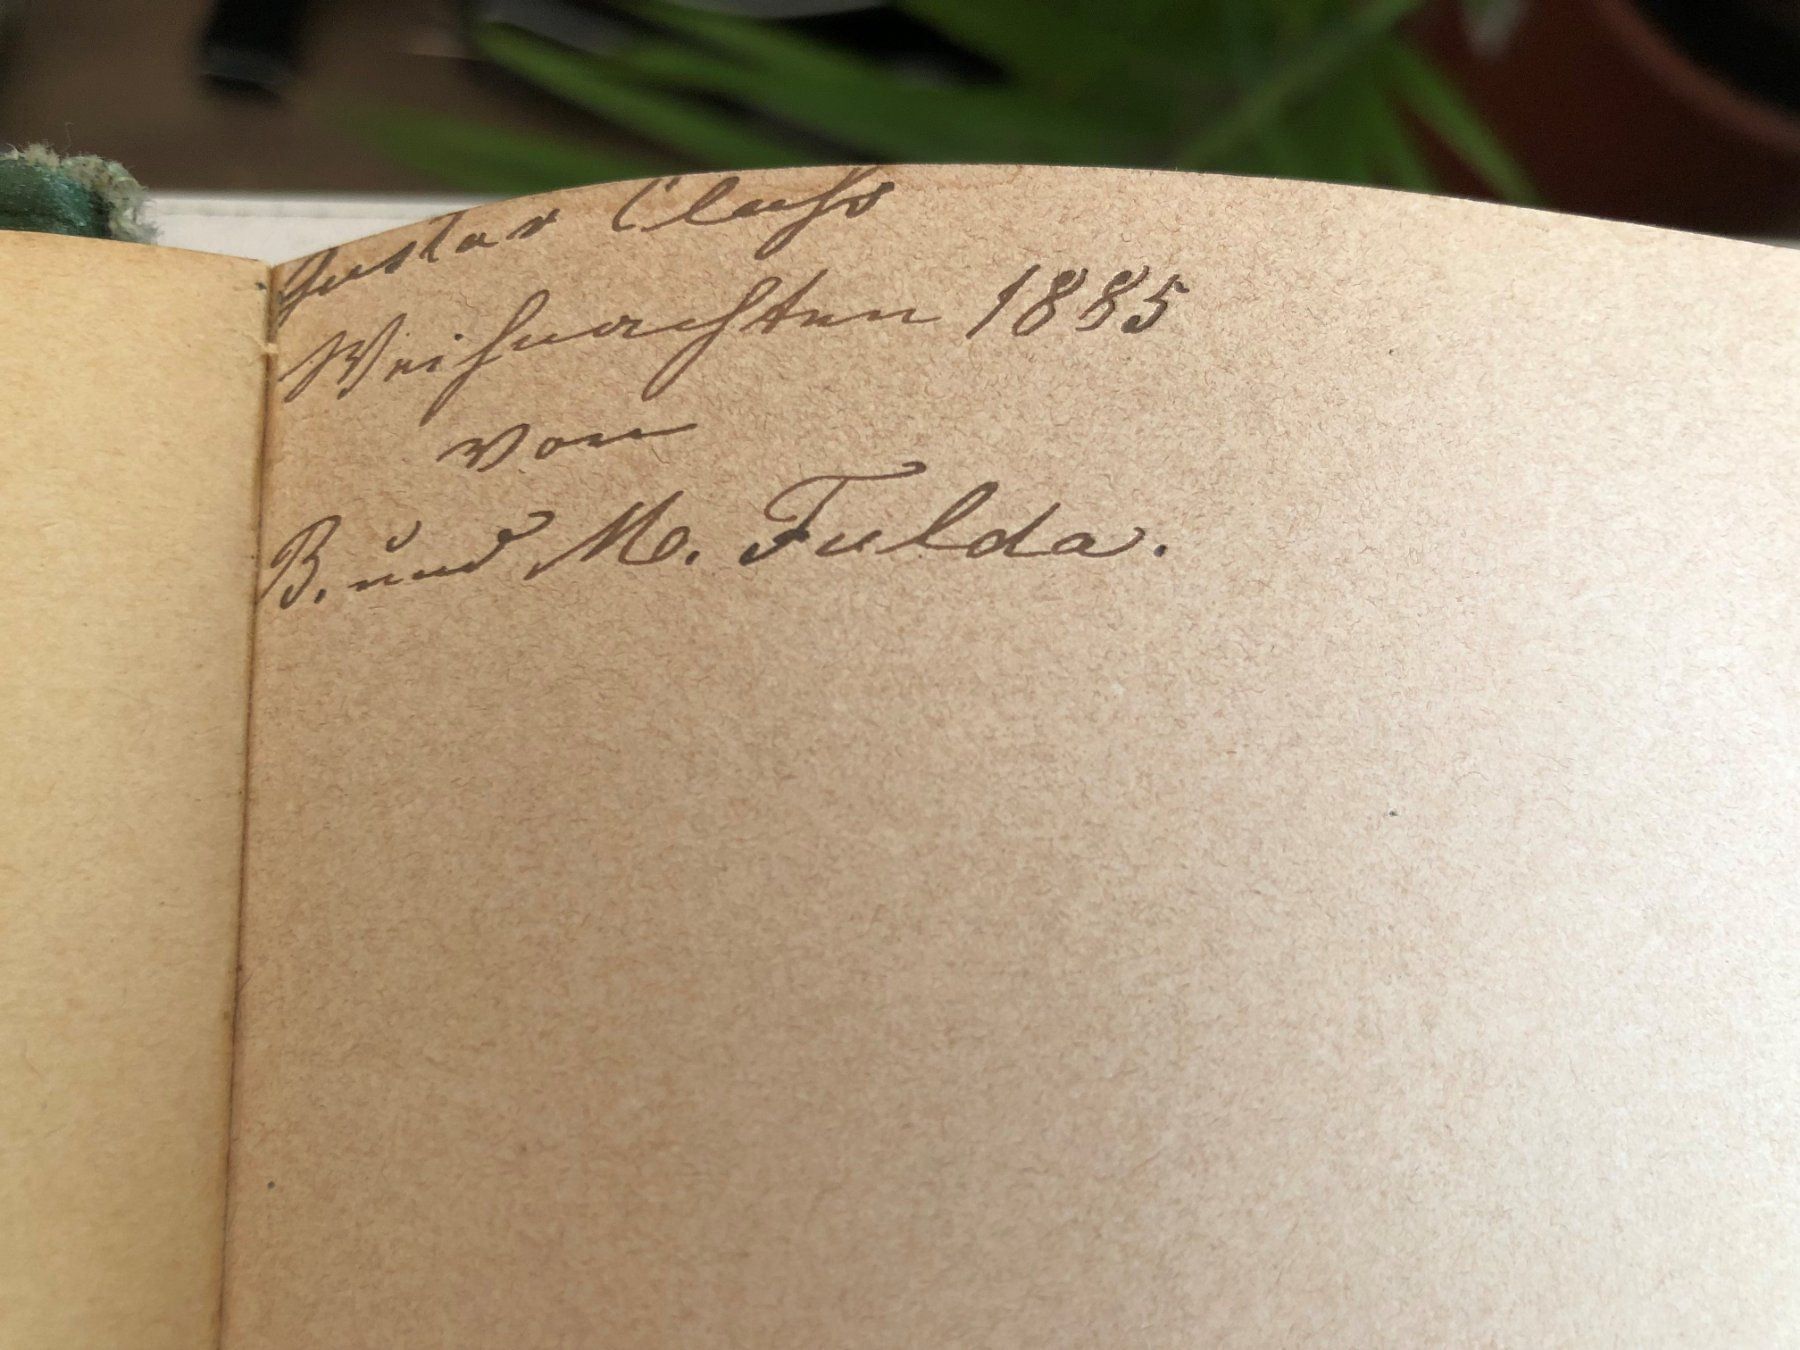 Gustav Clauß
Weihnachten 1885
von
B. und M. Fulda.